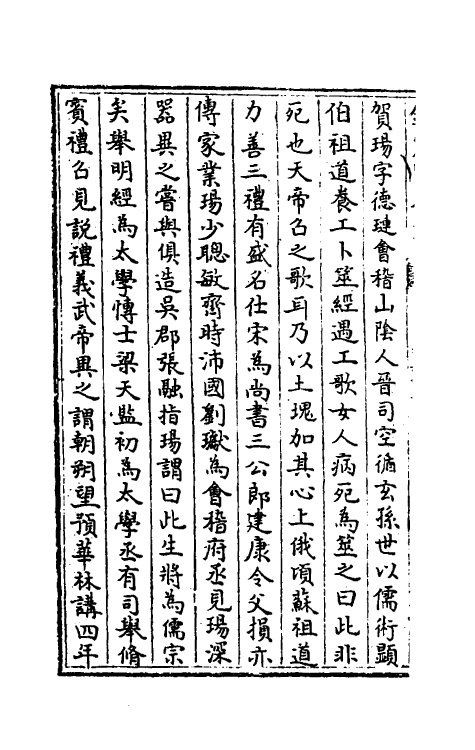 賀瑒字德璉會稽山陰人晉司空循玄孫世以儒術顯
伯祖道養工卜筮經遇工歌女人病死為筮之曰此非
死也天帝召之歌耳乃以土塊加其心上俄頃蘇祖道
力善三禮有盛名仕宋為尚書三公郎建康令父損亦
傳家業瑒少聰敏齊時沛國劉瓛為會稽府丞見瑒深
器異之嘗與俱造吳郡張融指瑒謂曰此生將為儒宗
矣舉明經為太學博士梁天監初為太學丞有司舉脩
賓禮召見説禮義武帝異之謂朝朔望預華林講四年